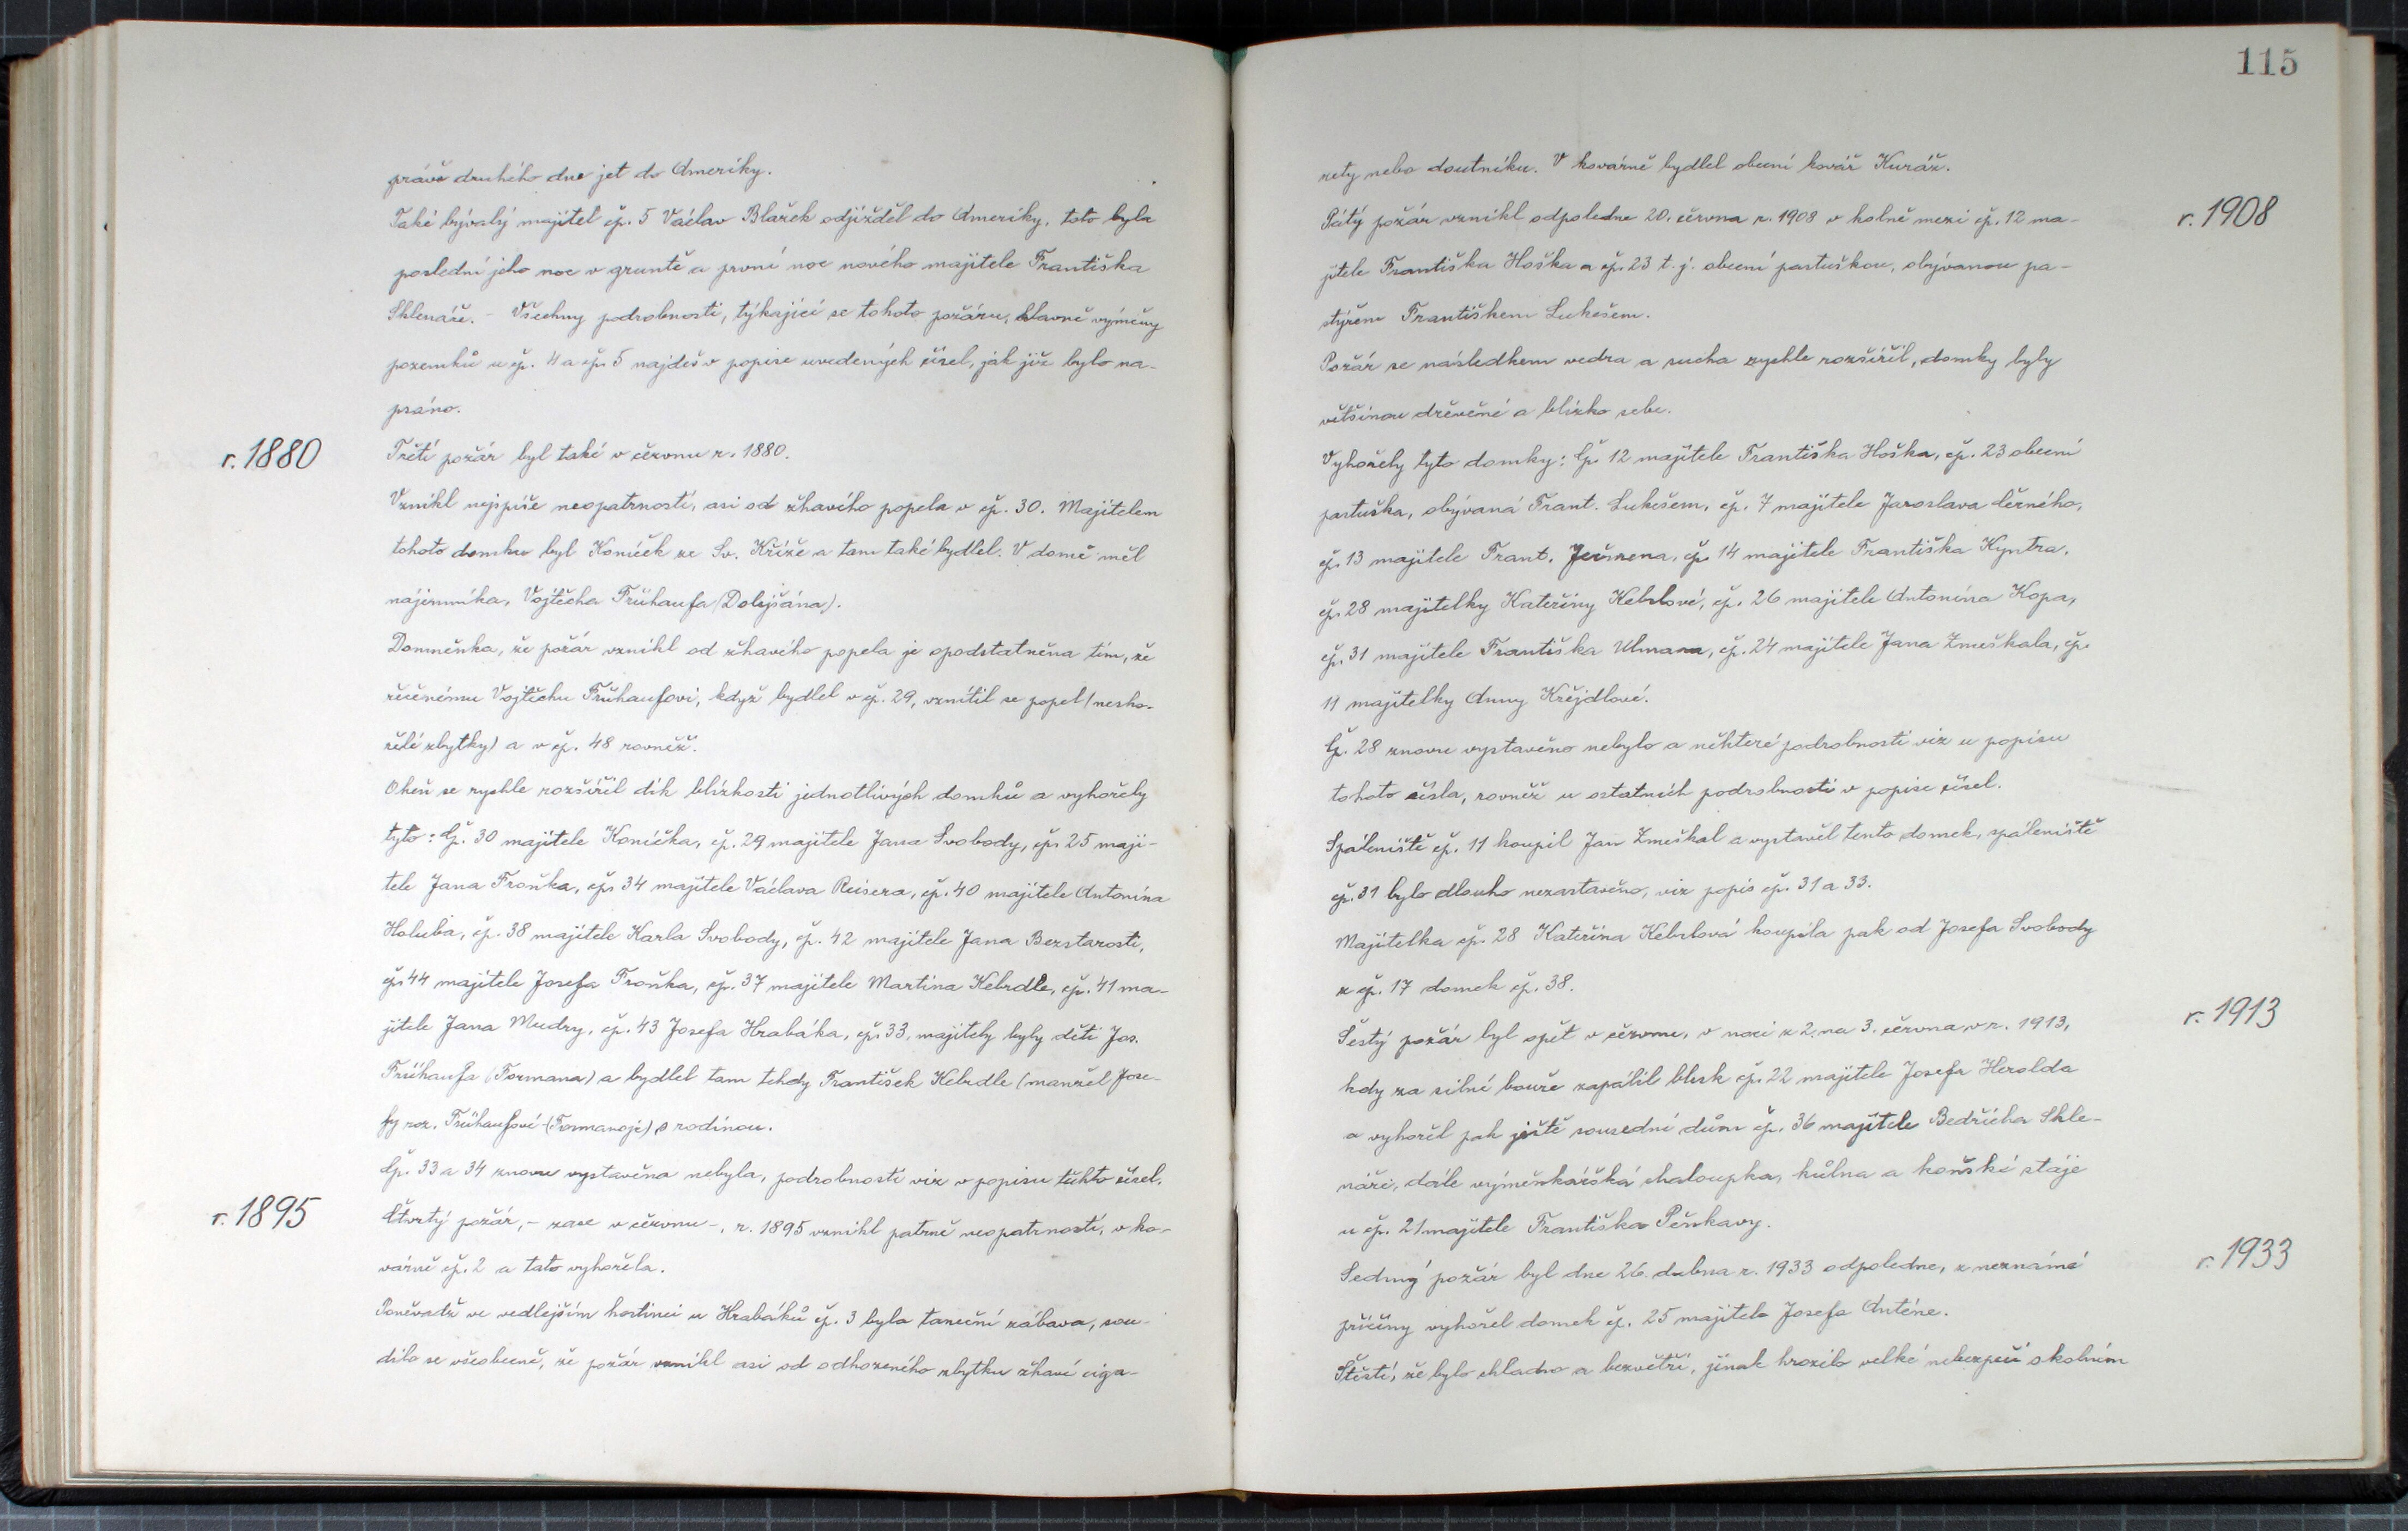 právě druhého dne jet do Ameriky.
Také bývalý majitel čp. 5 Václav Blažek odjížděl do Ameriky, toto byla
poslední jeho noc v gruntě a první noc nového majitele Františka
Sklenáře. - Všechny podrobnosti, týkající se tohoto požáru, hlavně výměny
pozemků u čp. 4 a čp. 5 najdeš v popise uvedených čísel, jak již bylo na-
psáno.
r. 1880
Třetí požár byl také v červnu r. 1880.
Vznikl nejspíše neopatrností, asi od žhavého popela v čp. 30. Majitelem
tohoto domku byl Koníček ze Sv. Kříže a tam také bydlel. V domě měl
nájemníka, Vojtěcha Frühaufa (Dolejšána).
Domněnka, že požár vznikl od žhavého popela je opodstatněna tím, že
řečenému Vojtěchu Frühaufovi, když bydlel v čp. 29, vznítil se popel (nesho-
řelé zbytky) a v čp. 48 rovněž.
Oheň se rychle rozšířil dík blízkosti jednotlivých domků a vyhořely
tyto: Čp. 30 majitele Koníčka, čp. 29 majitele Jana Svobody, čp. 25 maji-
tele Jana Froňka, čp. 34 majitele Václava Reisera, čp. 40 majitele Antonína
Holuba, čp. 38 majitele Karla Svobody, čp. 42 majitele Jana Bezstarosti,
čp. 44 majitele Josefa Froňka, čp. 37 majitele Martina Kebrdle, čp. 41 ma-
jitele Jana Mudry, čp. 43 Josefa Hrabáka, čp. 33, majitely byly děti Jos.
Frühaufa (Formana) a bydlel tam tehdy František Kebrdle (manžel Jose-
fy roz. Frühaufové (Formanojc) s rodinou.
Čp. 33 a 34 znovu vystavěna nebyla, podrobnosti viz v popisu těchto čísel.
r. 1895
Čtvrtý požár, - zase v červnu -, r. 1895 vznikl patrně neopatrností, v ko-
várně čp. 2 a tato vyhořela.
Poněvadž ve vedlejším hostinci u Hrabáků čp. 3 byla taneční zábava, sou-
dilo se všeobecně, že požár vznikl asi od odhozeného zbytku žhavé ciga-
115
rety nebo doutníku. V kovárně bydlel obecní kovář Kuráž.
r. 1908
Pátý požár vznikl odpoledne 20. června r. 1908 v kolně mezi čp. 12 ma-
jitele Františka Hoška a čp. 23 t. j. obecní pastuškou, obývanou pa-
stýřem Františkem Lukešem.
Požár se následkem vedra a sucha rychle rozšířil, domky byly
většinou dřevěné a blízko sebe.
Vyhořely tyto domky: Čp. 12 majitele Františka Hoška, čp. 23 obecní
pastuška, obývaná Frant. Lukešem, čp. 7 majitele Jaroslava Černého,
čp. 13 majitele Frant. čp. 14 majitele Františka Kyntra.
čp. 28 majitelky Kateřiny Kebrlové, čp. 26 majitele Antonína Kopa,
čp. 31 majitele Františka Ulmana, čp. 24 majitele Jana Zmeškala, čp.
11 majitelky Anny Křejdlové.
Čp. 28 znovu vystavěno nebylo a některé podrobnosti viz u popisu
tohoto čísla, rovněž u ostatních podrobnosti v popise čísel.
Spáleniště čp. 11 koupil Jan Zmeškal a vystavěl tento domek, spáleniště
čp. 31 bylo dlouho nezastavěno, viz popis čp. 31 a 33.
Majitelka čp. 28 Kateřina Kebrlová koupila pak od Josefa Svobody
z čp. 17 domek čp. 38.
r. 1913
Šestý požár byl opět v červnu, v noci z 2. na 3. června, v r. 1913,
kdy za silné bouře zapálil blesk čp. 22 majitele Josefa Herolda
a vyhořel pak ještě sousední dům čp. 36 majitele Bedřicha Skle-
náře, dále výměnkářská chaloupka, kůlna a koňské stáje
u čp. 21 majitele Františka Pěnkavy.
r. 1933
Sedmý požár byl dne 26. dubna r. 1933 odpoledne, z neznámé
příčiny vyhořel domek čp. 25 majitele Josefa Anténe.
Štěstí, že bylo chladno a bezvětří, jinak hrozilo velké nebezpečí okolním